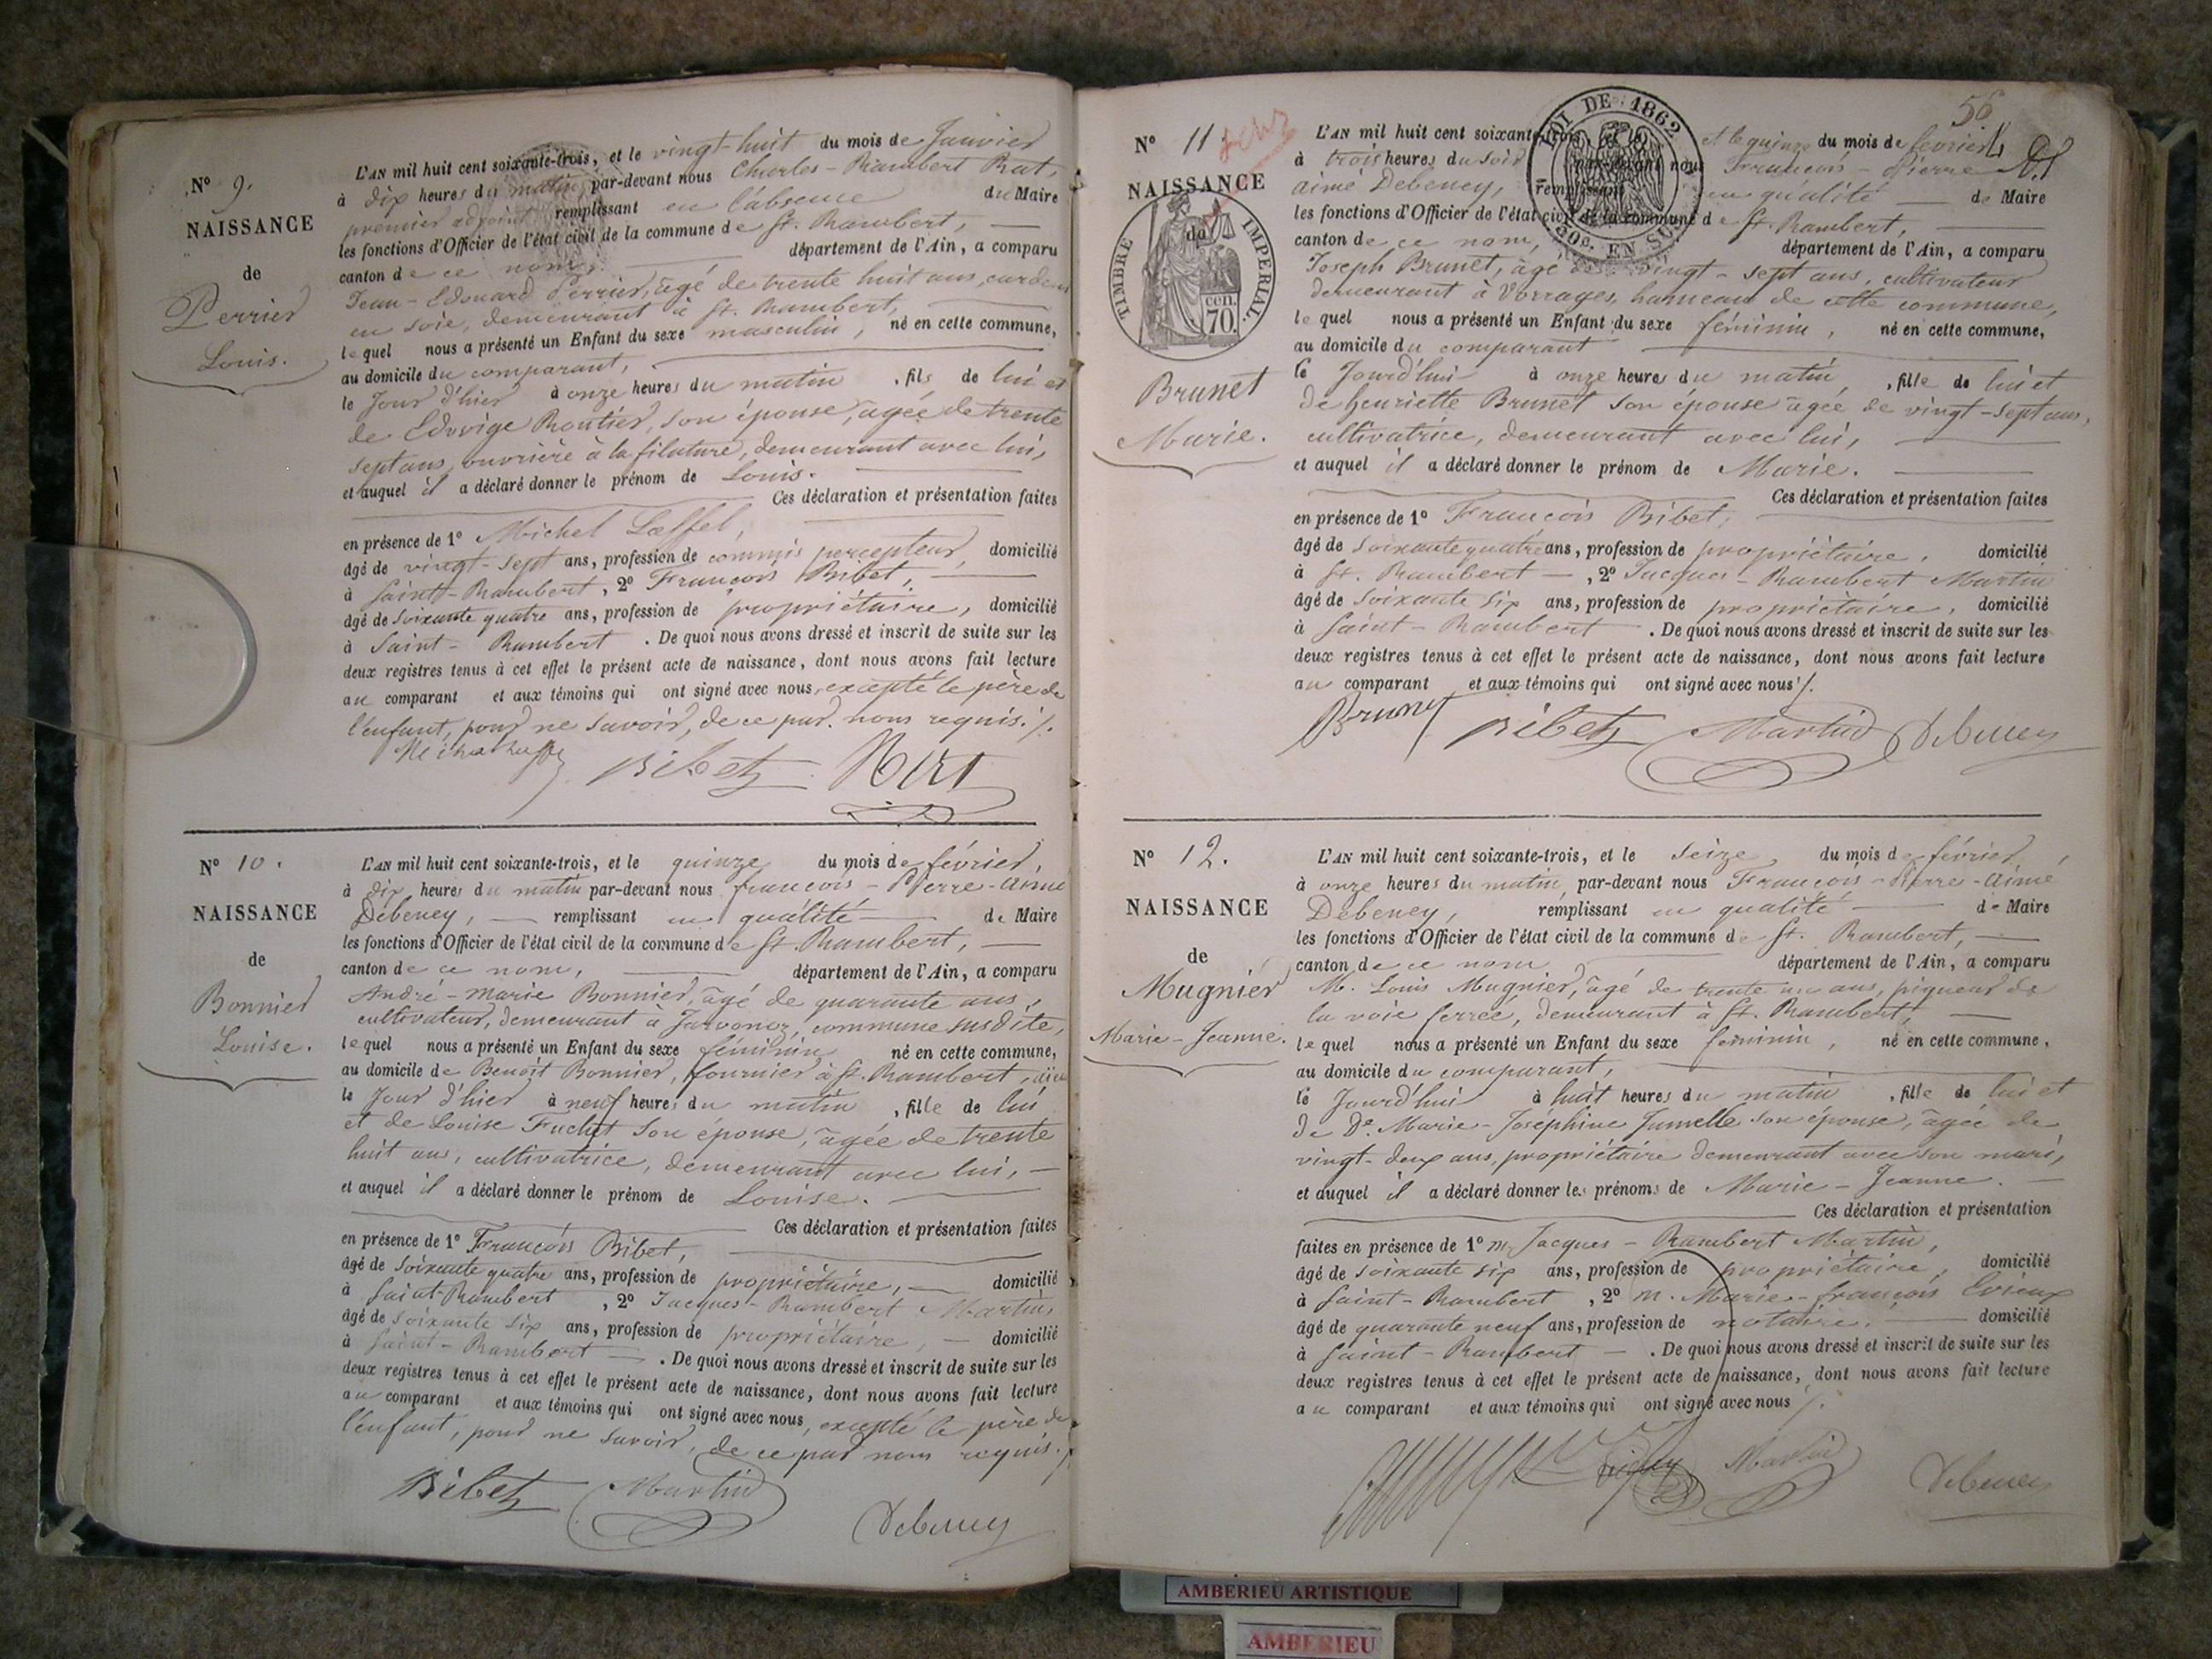 N° 9.
NAISSANCE
de
Perrier
Louis.
L'AN mil huit cent soixante-trois, et le vingt-huit du mois de Janvier
à dix heures du matin par-devant nous Charles-Rambert Rat,
premier adjoint remplissant en l'absence du Maire
les fonctions d'Officier de l'état civil de la commune de St. Rambert,
canton de ce nom, département de l'Ain, a comparu
Jean-Edouard Perrier, âgé de trente huit ans, cardeur
en soie, demeurant à St. Rambert,
lequel nous a présenté un Enfant du sexe masculin, né en cette commune,
au domicile du comparant,
le Jour d'hier à onze heures du matin, fils de lui et
de Edwige Routier, son épouse, âgée de trente
sept ans, ouvrière à la filature, demeurant avec lui,
et auquel il a déclaré donner le prénom de Louis.
Ces déclaration et présentation faites
en présence de 1° Michel Lœffel,
âgé de vingt-sept ans, profession de commis percepteur, domicilié
à Saint-Rambert, 2° François Bibet,
âgé de soixante quatre ans, profession de propriétaire, domicilié
à Saint-Rambert. De quoi nous avons dressé et inscrit de suite sur les
deux registres tenus à cet effet le présent acte de naissance, dont nous avons fait lecture
au comparant et aux témoins qui ont signé avec nous, excepté le père de
l'enfant, pour ne savoir, de ce par nous requis ./.
Bibet
N° 10.
NAISSANCE
de
Bonnier
Louise.
L'AN mil huit cent soixante-trois, et le quinze du mois de février,
à dix heures du matin par-devant nous françois-Pierre-Aimé
Debeney, remplissant en qualité de Maire
les fonctions d'Officier de l'état civil de la commune de St. Rambert,
canton de ce nom, département de l'Ain, a comparu
André-Marie Bonnier, âgé de quarante ans,
cultivateur, demeurant à Javonoz, commune susdite,
lequel nous a présenté un Enfant du sexe féminin né en cette commune,
au domicile de Benoît Bonnier, fournier à St. Rambert,
le Jour d'hier à neuf heures du matin, fille de lui
et de Louise Fuchet son épouse, âgée de trente
huit ans, cultivatrice, demeurant avec lui,
et auquel il a déclaré donner le prénom de Louise.
Ces déclaration et présentation faites
en présence de 1° François Bibet,
âgé de soixante quatre ans, profession de propriétaire, domicilié
à Saint-Rambert, 2° Jacques-Rambert Martin,
âgé de soixante six ans, profession de propriétaire, domicilié
à Saint-Rambert. De quoi nous avons dressé et inscrit de suite sur les
deux registres tenus à cet effet le présent acte de naissance, dont nous avons fait lecture
au comparant et aux témoins qui ont signé avec nous, excepté le père de
l'enfant, pour ne savoir, de ce par nous requis ./.
Bibet Martin
Debeney
56
LOI DE 1862
50c. EN SUS
N° 11
NAISSANCE
de
TIMBRE IMPERIAL
cen.
70.
Brunet
Marie.
L'AN mil huit cent soixante-trois, et le quinze du mois de février
à trois heures du soir par-devant nous François-Pierre
aimé Debeney, remplissant en qualité de Maire
les fonctions d'Officier de l'état civil de la commune de St. Rambert,
canton de ce nom, département de l'Ain, a comparu
Joseph Brunet, âgé de vingt-sept ans, cultivateur
demeurant à Vorrages, hameau de cette commune,
lequel nous a présenté un Enfant du sexe féminin, né en cette commune,
au domicile du comparant
le Jourd'hui à onze heures du matin, fille de lui et
de henriette Brunet son épouse âgée de vingt-sept ans,
cultivatrice, demeurant avec lui,
et auquel il a déclaré donner le prénom de Marie.
Ces déclaration et présentation faites
en présence de 1° François Bibet,
âgé de soixante quatre ans, profession de propriétaire, domicilié
à St. Rambert, 2° Jacques-Rambert Martin
âgé de soixante six ans, profession de propriétaire, domicilié
à Saint-Rambert. De quoi nous avons dressé et inscrit de suite sur les
deux registres tenus à cet effet le présent acte de naissance, dont nous avons fait lecture
au comparant et aux témoins qui ont signé avec nous ./.
Brunet Bibet Martin Debeney
N° 12.
NAISSANCE
de
Mugnier
Marie-Jeanne.
L'AN mil huit cent soixante-trois, et le seize du mois de février,
à onze heures du matin, par-devant nous François-Pierre-Aimé
Debeney, remplissant en qualité de Maire
les fonctions d'Officier de l'état civil de la commune de St. Rambert,
canton de ce nom département de l'Ain, a comparu
M. Louis Mugnier, âgé de trente un ans, piqueur de
la voie ferrée, demeurant à St. Rambert,
lequel nous a présenté un Enfant du sexe féminin, né en cette commune,
au domicile du comparant,
le Jourd'hui à huit heures du matin, fille de lui et
de De. Marie-Joséphine Jumelle son épouse, âgée de
vingt-deux ans, propriétaire demeurant avec son mari,
et auquel il a déclaré donner les prénoms de Marie-Jeanne.
Ces déclaration et présentation
faites en présence de 1° Mr Jacques-Rambert Martin,
âgé de soixante six ans, profession de propriétaire, domicilié
à Saint-Rambert, 2° M. Marie-françois
âgé de quarante neuf ans, profession de notaire, domicilié
à Saint-Rambert. De quoi nous avons dressé et inscrit de suite sur les
deux registres tenus à cet effet le présent acte de naissance, dont nous avons fait lecture
au comparant et aux témoins qui ont signé avec nous ./.
Martin Debeney
AMBERIEU ARTISTIQUE
AMBERIEU